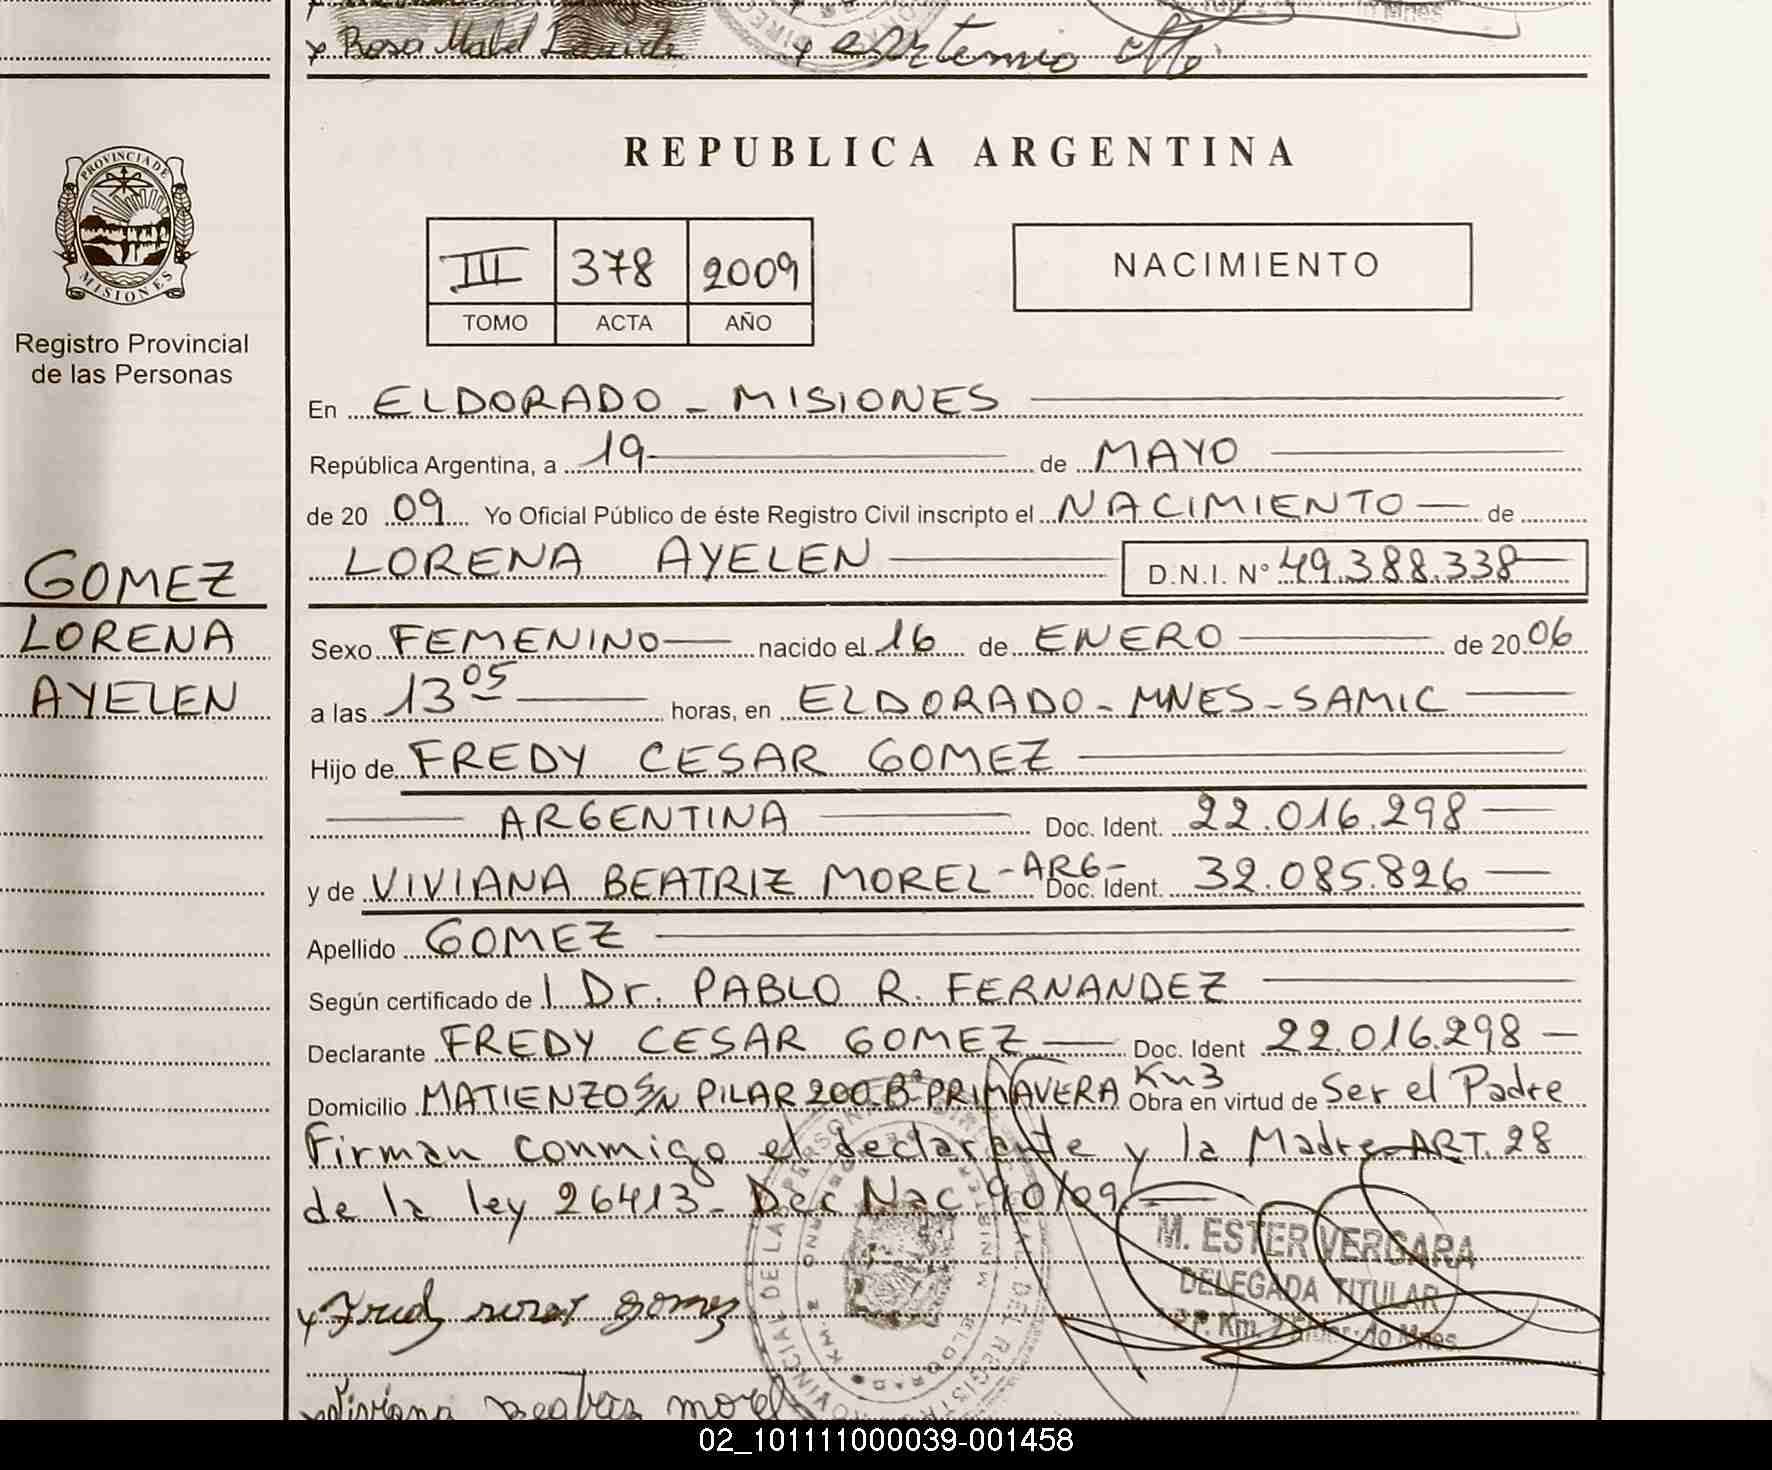 x Rosa Mabel
x Artemio
REPUBLICA ARGENTINA
PROVINCIA DE
MISIONES
Registro Provincial
de las Personas
III 378 2009
TOMO ACTA AÑO
NACIMIENTO
En ELDORADO - MISIONES
República Argentina, a 19 de MAYO
de 20 09 Yo Oficial Público de éste Registro Civil inscripto el NACIMIENTO de
LORENA AYELEN D.N.I. N° 49.388.338
GOMEZ
LORENA
AYELEN
Sexo FEMENINO nacido el 16 de ENERO de 20 06
a las 13 05 horas, en ELDORADO - MNES - SAMIC
Hijo de FREDY CESAR GOMEZ
ARGENTINA Doc. Ident. 22.016.298
y de VIVIANA BEATRIZ MOREL - ARG - Doc. Ident. 32.085.826
Apellido GOMEZ
Según certificado de l Dr. PABLO R. FERNANDEZ
Declarante FREDY CESAR GOMEZ Doc. Ident 22.016.298
Domicilio MATIENZO S/N PILAR 200 Bº PRIMAVERA Km 3 Obra en virtud de Ser el Padre
Firman conmigo el declarante y la Madre ART. 28
de la ley 26413 - Dec Nac 90/09
M. ESTER VERGARA
DELEGADA TITULAR
x Fredy Gomez
Viviana Beatriz morel
02_101111000039-001458